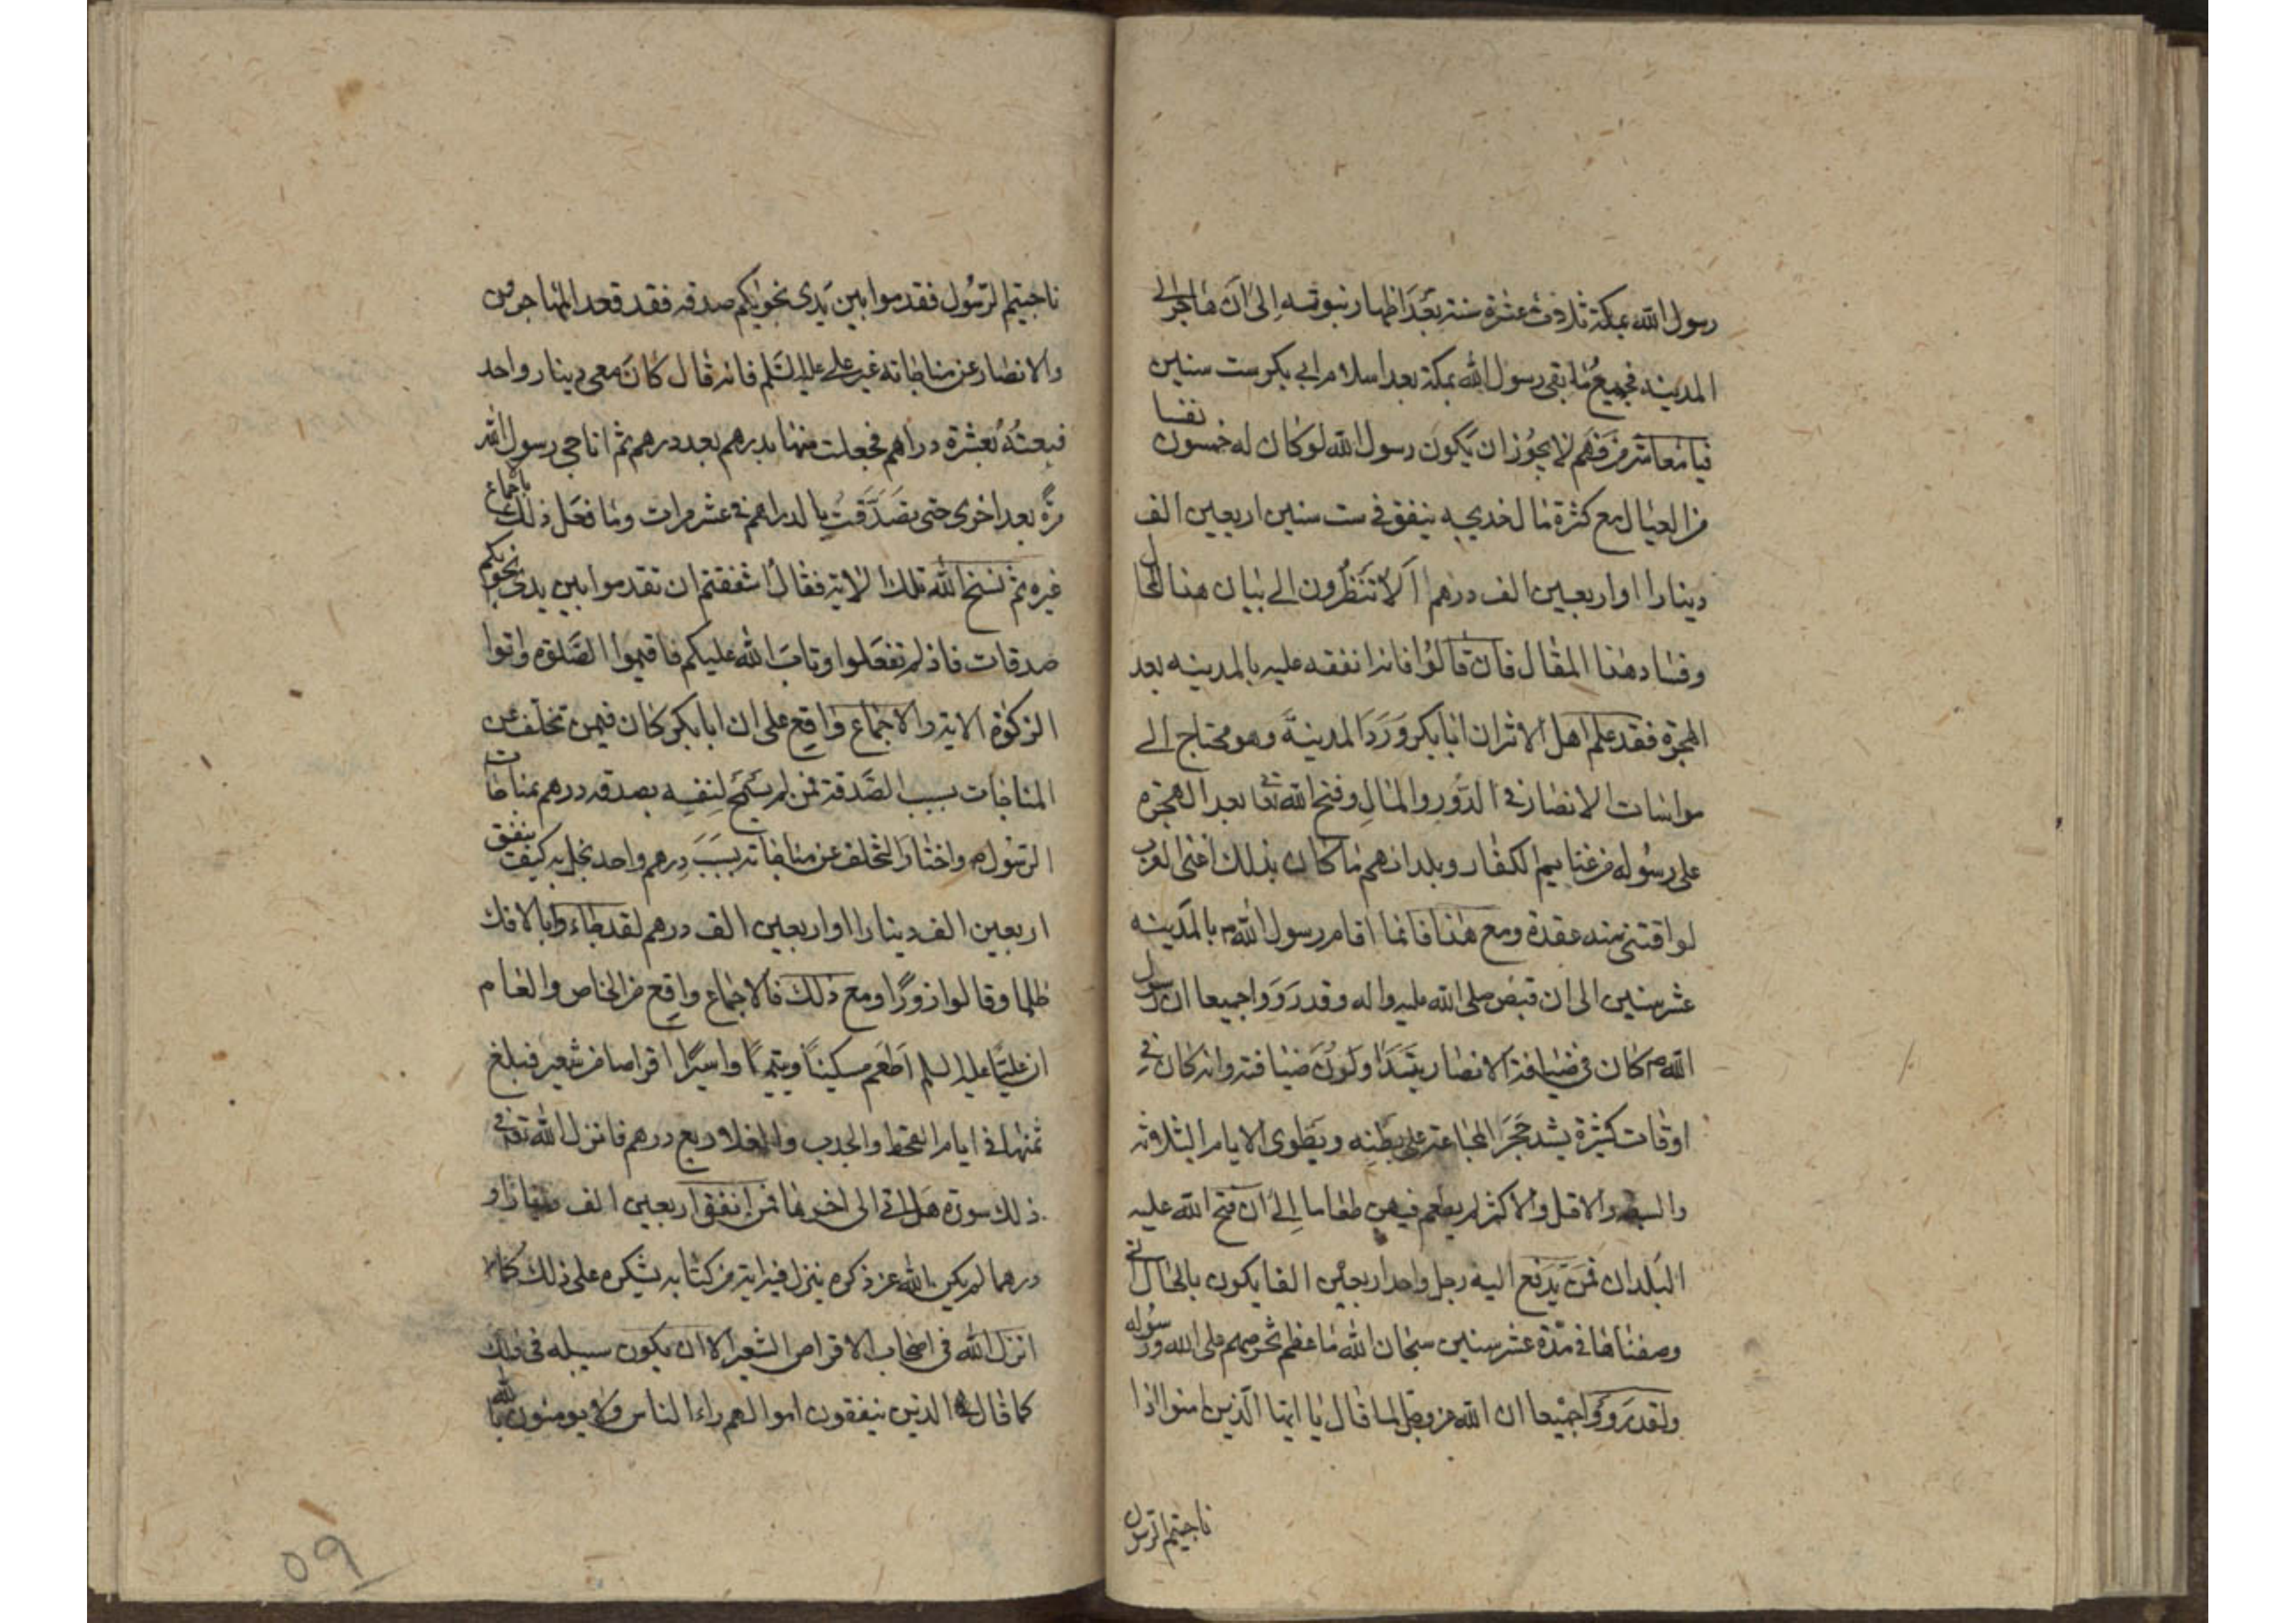 رسول الله بمكة ثلاث عشرة سنة بعد اظهار نبوته الى ان هاجر الى
المدينه فجميع ما بقى رسول الله بمكة بعد اسلام ابى بكر ست سنين
فيا معاشر من فهم لا يجوز ان يكون رسول الله لو كان له خمسون نفسا
من العيال مع كثرة مال خديجه ينفق فى ست سنين اربعين الف
دينارا او اربعين الف درهم الا تنظرون الى بيان هذا المحال
وفساد هذا المقال فان قالوا فانه انفقه عليه بالمدينه بعد
الهجرة فقد علم اهل الاثر ان ابا بكر ورد المدينة وهو محتاج الى
مواسات الانصار فى الدور والمال وفتح الله تعا بعد الهجره
على رسوله من غنايم الكفار وبلدانهم ما كان بذلك اغنى العرب
لو اقتنى منه عقدة ومع هذا فانما اقام رسول الله ص بالمدينه
عشر سنين الى ان قبض صلى الله عليه واله وقد رووا جميعا ان رسول
الله ص كان فى ضيافة الانصار يتداولون ضيافته وانه كان فى
اوقات كثيرة يشد حجر المجاعة على بطنه ويطوى الايام الثلاثه
والسبعه والاقل والاكثر لم يطعم فيهن طعاما الى ان فتح الله عليه
البلدان فمن يدفع اليه رجل واحد اربعين الفا يكون بالحال التى
وصفناها فى مدة عشر سنين سبحان الله ما عظم تخرصهم على الله ورسوله
ولقد رووا جميعا ان الله عز وجل لما قال يا ايها الذين امنوا اذا
ناجيتم الرسول
ناجيتم الرسول فقدموا بين يدى نجويكم صدقه فقد قعد المهاجرون
والانصار عن مناجاته غير على عليه السلم فانه قال كان معى دينار واحد
فبعته بعشرة دراهم فجعلت منها بدرهم بعد درهم ثم اناجى رسول الله
مرة بعد اخرى حتى تصدقت بالدراهم فى عشر مرات وما فعل ذلك باجماع
غيره ثم نسخ الله تلك الاية فقال ااشفقتم ان تقدموا بين يدى نجويكم
صدقات فاذ لم تفعلوا وتاب الله عليكم فاقيموا الصلوة واتوا
الزكوة الاية والاجماع واقع على ان ابا بكر كان فيمن تخلف عن
المناجات بسبب الصدقة فمن لم يسمح لنفسه بصدقه درهم بمناجات
الرسول ص واختار التخلف عن مناجاته بسبب درهم واحد بخل به كيف ينفق
اربعين الف دينارا او اربعين الف درهم لقد جاءوا بالافك
ظلما وقالوا زورا ومع ذلك فالاجماع واقع من الخاص والعام
ان عليا عليه السلم اطعم مسكينا ويتيما واسيرا اقراصا من شعير فبلغ
ثمنها فى ايام القحط والجدب والغلا ربع درهم فانزل الله تعا فى
ذلك سورة هل اتى الى اخرها فمن انفق اربعين الف دينارا و
درهما لم يكن الله عز ذكره ينزل فيه اية من كتابه يشكره على ذلك كما
انزل الله فى اصحاب الاقراص الشعير الا ان يكون سبيله فى ذلك
كما قال الله الذين ينفقون اموالهم راء الناس ولا يومنون بالله
09